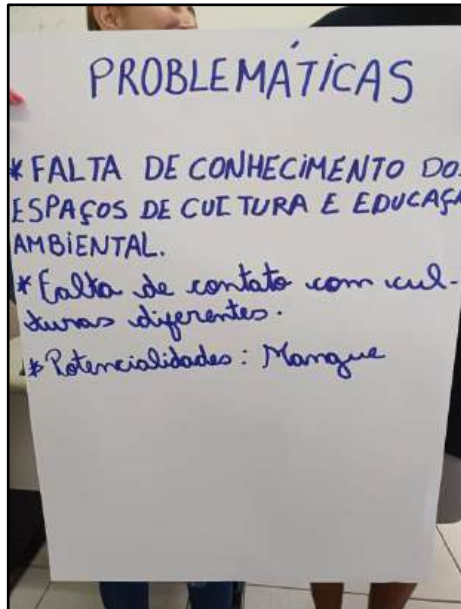 PROBLEMÁTICAS
* FALTA DE CONHECIMENTO DOS
ESPAÇOS DE CULTURA E EDUCAÇÃ
AMBIENTAL.
* Falta de contato com cul-
turas diferentes.
* Potencialidades: Mangue